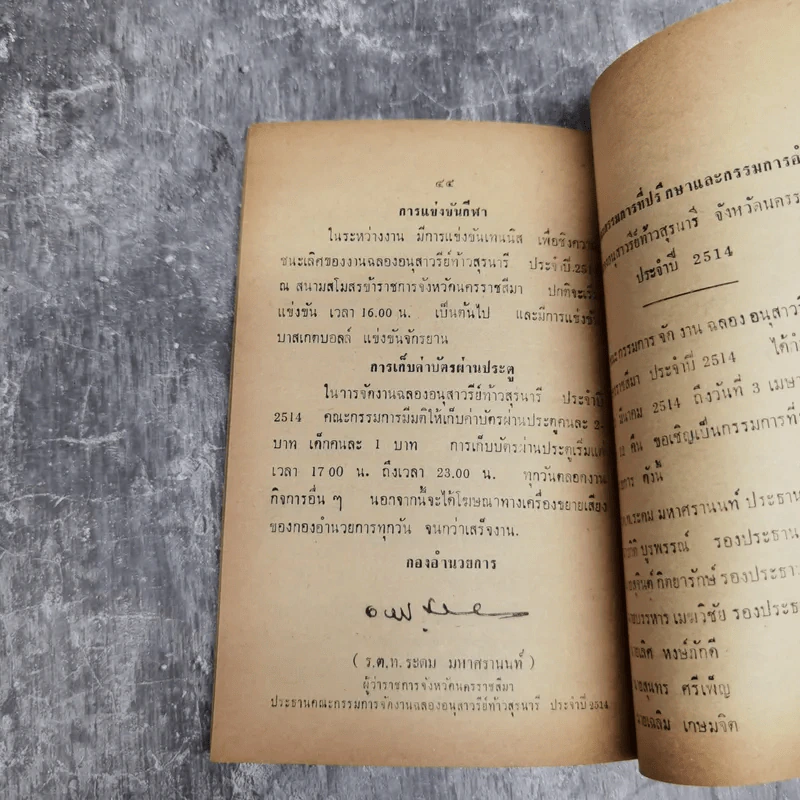 ๔๕
การแข่งขันกีฬา
ในระหว่างงาน มีการแข่งขันเทนนิส เพื่อชิงความ
ชนะเลิศของงานฉลองอนุสาวรีย์ท้าวสุรนารี ประจำปี
ณ สนามสโมสรข้าราชการจังหวัดนครราชสีมา ปกติจะเริ่ม
แข่งขัน เวลา 16.00 น. เป็นต้นไป และมีการแข่งขัน
บาสเกตบอลล์ แข่งขันจักรยาน
การเก็บค่าบัตรผ่านประตู
ในการจัดงานฉลองอนุสาวรีย์ท้าวสุรนารี ประจำปี
2514 คณะกรรมการมีมติให้เก็บค่าบัตรผ่านประตูคนละ 2
บาท เด็กคนละ 1 บาท การเก็บบัตรผ่านประตูเริ่ม
เวลา 17 00 น. ถึงเวลา 23.00 น. ทุกวันตลอดงาน
กิจการอื่น ๆ นอกจากนี้จะได้โฆษณาทางเครื่องขยายเสียง
ของกองอำนวยการทุกวัน จนกว่าเสร็จงาน.
กองอำนวยการ
( ร.ต.ท. ระดม มหาศรานนท์ )
ผู้ว่าราชการจังหวัดนครราชสีมา
ประธานคณะกรรมการจัดงานฉลองอนุสาวรีย์ท้าวสุรนารี ประจำปี 2514
กรรมการที่ปรึกษาและกรรมการ
ท้าวสุรนารี จังหวัดนคร
ประจำปี 2514
กรรมการ จัด งาน ฉลอง อนุสาวรี
ประจำปี 2514 ได้
มีนาคม 2514 ถึงวันที่ 3 เมษา
คืน ขอเชิญเป็นกรรมการที่
ดังนี้
ระดม มหาศรานนท์ ประธาน
บุรพรรณ์ รองประธาน
กิตยารักษ์ รองประธาน
บรรหาร เมฆวิชัย รองประธ
หงษ์ภักดี
สุนทร ศรีเพ็ญ
เฉลิม เกษมจิต